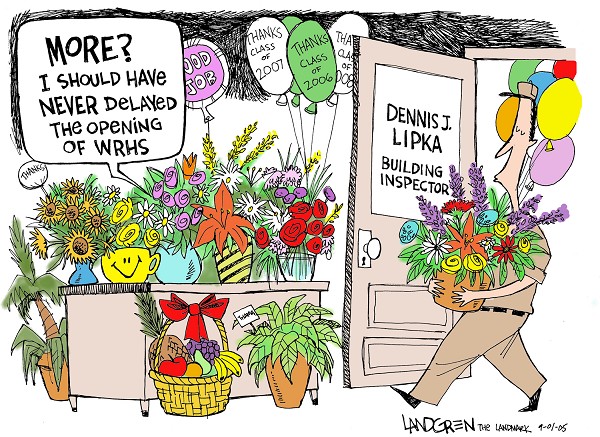 MORE?
I SHOULD HAVE
NEVER DELAYED
THE OPENING
OF WRHS
GOOD
JOB
THANKS
CLASS
OF
2007
THANKS
CLASS
OF
2006
THANKS
CLASS
OF
DENNIS J.
LIPKA
BUILDING
INSPECTOR
THANKS
THANKS
LANDGREN THE LANDMARK 9-01-05